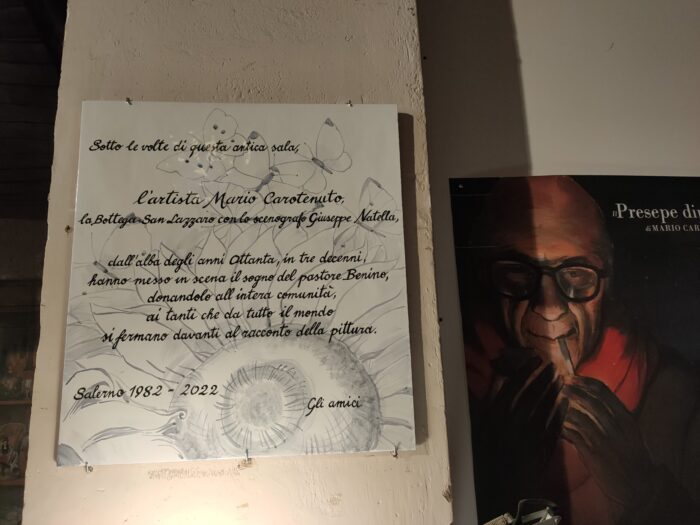 Sotto le volte di questa antica sala,
l'artista Mario Carotenuto,
la Bottega San Lazzaro con lo scenografo Giuseppe Natella,
dall'alba degli anni Ottanta, in tre decenni,
hanno messo in scena il sogno del pastore Benino,
donandolo all'intera comunità,
ai tanti che da tutto il mondo
si fermano davanti al racconto della pittura.
Salerno 1982 - 2022
Gli amici
il Presepe di
di MARIO CAR